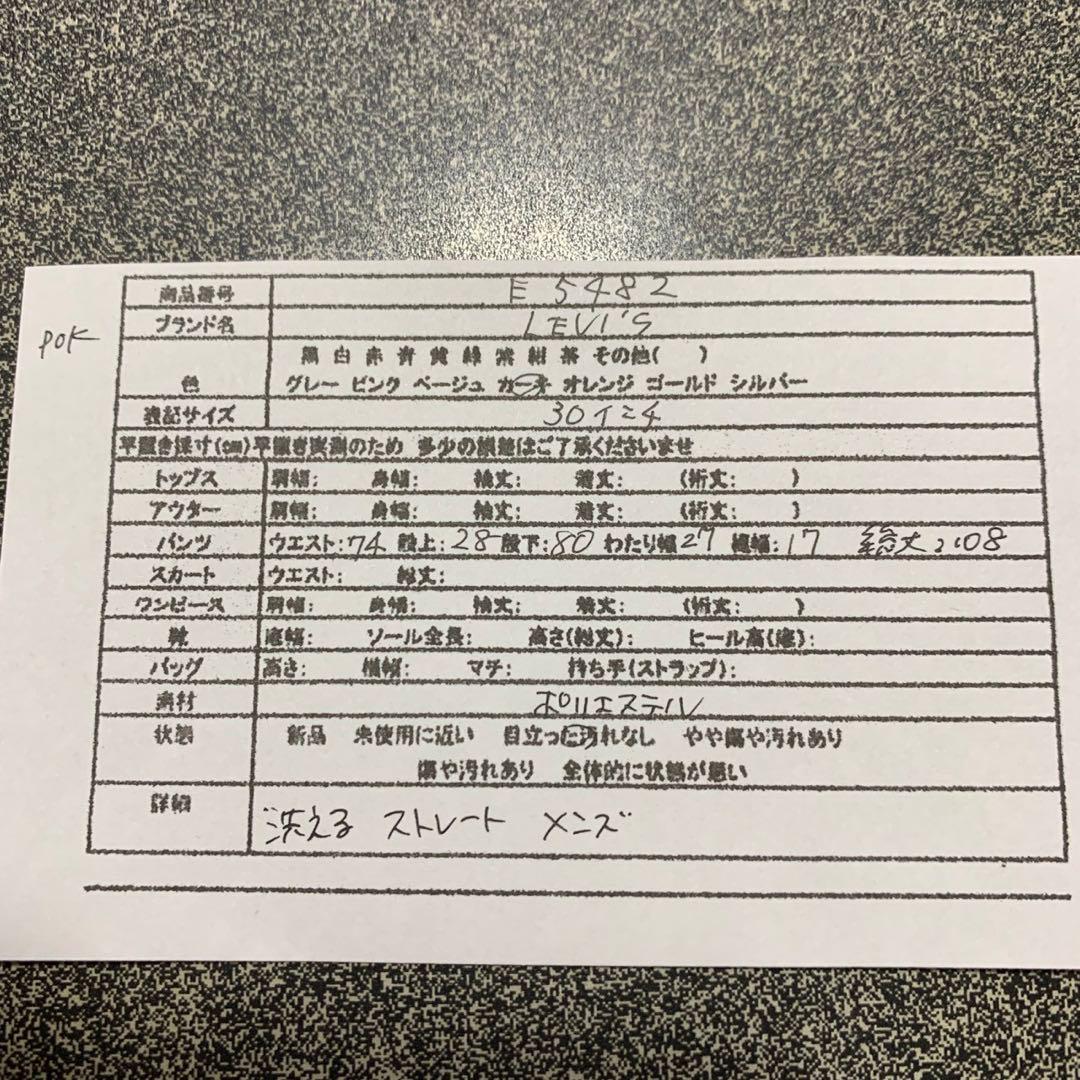 POK
商品番号 E 5482
ブランド名 LEVI'S
黒 白 赤 青 黄 緑 紫 紺 茶 その他( )
色 グレー ピンク ベージュ カーキ オレンジ ゴールド シルバー
表記サイズ 30インチ
平置き採寸(cm)平置き実測のため 多少の誤差はご了承くださいませ
トップス 肩幅: 身幅: 袖丈: 着丈: (裄丈: )
アウター 肩幅: 身幅: 袖丈: 着丈: (裄丈: )
パンツ ウエスト:74 股上:28 股下:80 わたり幅27 裾幅:17 総丈:108
スカート ウエスト: 総丈:
ワンピース 肩幅: 身幅: 袖丈: 着丈: (裄丈: )
靴 底幅: ソール全長: 高さ(総丈): ヒール高(底):
バッグ 高さ: 横幅: マチ: 持ち手(ストラップ):
素材 ポリエステル
状態 新品 未使用に近い 目立った汚れなし やや傷や汚れあり
傷や汚れあり 全体的に状態が悪い
詳細 洗える ストレート メンズ